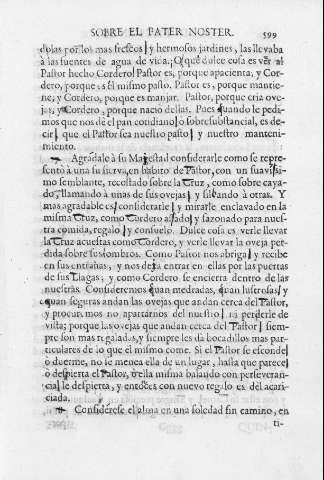 SOBRE EL PATER NOSTER. 599
dolas por los mas frescos, y hermosos jardines, las llevaba
à las fuentes de agua de vida. O què dulce cosa es ver al
Pastor hecho Cordero! Pastor es, porque apacienta, y Cor-
dero, porque es el mismo pasto. Pastor es, porque mantie-
ne, y Cordero, porque es manjar. Pastor, porque cria ove-
jas, y Cordero, porque naciò dellas. Pues quando le pedi-
mos que nos dè el pan cotidiano, ò sobresubstancial, es de-
cir, que el Pastor sea nuestro pasto, y nuestro manteni-
miento.
Agradale à su Magestad considerarle como se repre-
sentò à una su sierva, en habito de Pastor, con un suavissi-
mo semblante, recostado sobre la Cruz, como sobre caya-
do, llamando à unas de sus ovejas, y silvando à otras. Y
mas agradable es, considerarle, y mirarle enclavado en la
misma Cruz, como Cordero assado, y sazonado para nues-
tra comida, regalo, y consuelo. Dulce cosa es verle llevar
la Cruz acuestas como Cordero, y verle llevar la oveja per-
dida sobre sus ombros. Como Pastor nos abriga, y recibe
en sus entrañas, y nos dexa entrar en ellas por las puertas
de sus Llagas, y como Cordero se encierra dentro de las
nuestras. Consideremos quan medradas, quan lustrosas, y
quan seguras andan las ovejas que andan cerca del Pastor,
y procuremos no apartarnos del nuestro, ni perderle de
vista; porque las ovejas que andan cerca del Pastor, siem-
pre son mas regaladas, y siempre les dà bocadillos mas par-
ticulares de lo que èl mismo come. Si el Pastor se esconde,
ò duerme, no se menea ella de un lugar, hasta que parece,
ò despierta el Pastor, ò ella misma balando con perseveran-
cia le despierta, y entonces con nuevo regalo es del acari-
ciada.
Considerese el alma en una soledad sin camino, en
ti-